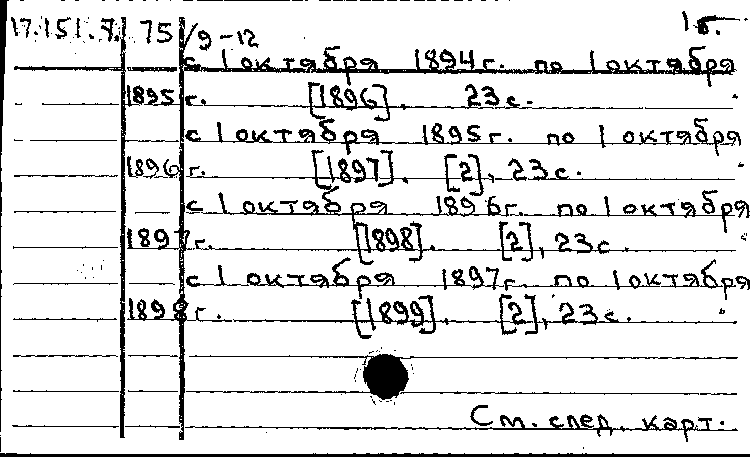 17.151.7. 75/9-12 1б.
с 1 октября 1894 г. по 1 октября
1895 г. [1896]. 23 с.
с 1 октября 1895 г. по 1 октября
1896 г. [1897]. [2], 23 с.
с 1 октября 1896 г. по 1 октября
1897 г. [1898]. [2], 23 с.
с 1 октября 1897 г. по 1 октября
1898 г. [1899]. [2], 23 с.
См. след. карт.